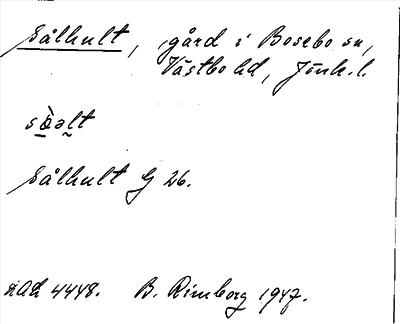 Sålhult, gård i Bosebo sn,
Västbo hd, Jönk. l.
Sålhult G 26.
4448. B. Rimborg 1947.